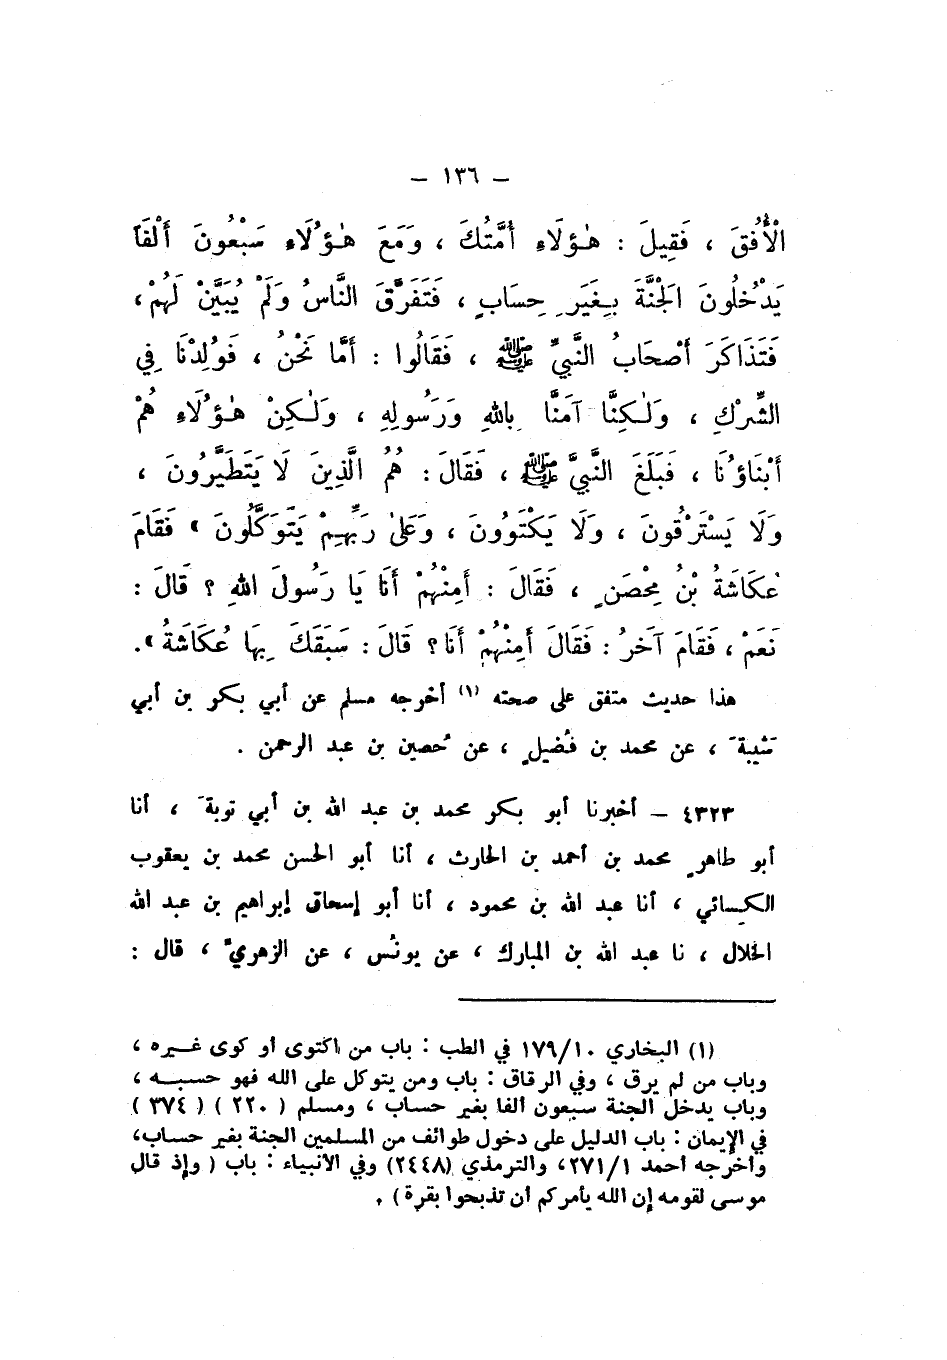 – ١٣٦ –
الْأُفُقَ ، فَقِيلَ : هٰؤلَاءِ أُمَّتُكَ ، وَمَعَ هٰؤُلَاءِ سَبْعُونَ أَلْفَاً
يَدْخُلُونَ الجَنَّةَ بِغَيرِ حِسَابٍ ، فَتَفَرَّقَ النَّاسُ وَلَمْ يُبَيَّنْ لَهُمْ ،
فَتَذَاكَرَ أَصْحَابُ النَّبِيِّ ﷺ ، فَقَالُوا : أَمَّا نَحْنُ ، فَوُلِدْنَا فِي
الشِّرْكِ ، وَلٰكِنَّا آمَنَّا بِاللهِ وَرَسُولِهِ ، وَلٰكِنْ هٰؤُلَاءِ هُمْ
أَبْنَاؤُنَا ، فَبَلَغَ النَّبِيَّ ﷺ ، فَقَالَ : هُمُ الَّذِينَ لَا يَتَطَيَّرُونَ ،
وَلَا يَسْتَرْقُونَ ، وَلَا يَكْتَوُونَ ، وَعَلىٰ رَبِّهِمْ يَتَوَكَّلُونَ » فَقَامَ
عُكَاشَةُ بْنُ مِحْصَنٍ ، فَقَالَ : أَمِنْهُمْ أَنَا يَا رَسُولَ اللهِ ؟ قَالَ :
نَعَمْ ، فَقَامَ آخَرُ : فَقَالَ أَمِنْهُمْ أَنَا ؟ قَالَ : سَبَقَكَ بِهَا عُكَاشَةُ » .
هذا حديث متفق على صحته (١) أخرجه مسلم عن أبي بكر بن أبي
شيبةَ ، عن محمد بن فُضيلٍ ، عن حُصين بن عبد الرحمن .
٤٣٢٣ – أخبرنا أبو بكر محمد بن عبد الله بن أبي توبةَ ، أنا
أبو طاهرٍ محمد بن أحمد بن الحارث ، أنا أبو الحسن محمد بن يعقوب
الكسائي ، أنا عبد الله بن محمود ، أنا أبو إسحاق إبراهيم بن عبد الله
الخلال ، نا عبد الله بن المبارك ، عن يونُس ، عن الزهريِّ ، قال :
(١) البخاري ١٧٩/١٠ في الطب : باب من اكتوى أو كوى غيره ،
وباب من لم يرق ، وفي الرقاق : باب ومن يتوكل على الله فهو حسبه ،
وباب يدخل الجنة سبعون ألفا بغير حساب ، ومسلم ( ٢٢٠ ) ( ٣٧٤ )
في الإيمان : باب الدليل على دخول طوائف من المسلمين الجنة بغير حساب،
وأخرجه أحمد ٢٧١/١، والترمذي (٢٤٤٨) وفي الانبياء : باب ( وإذ قال
موسى لقومه إن الله يأمركم أن تذبحوا بقرة ) .